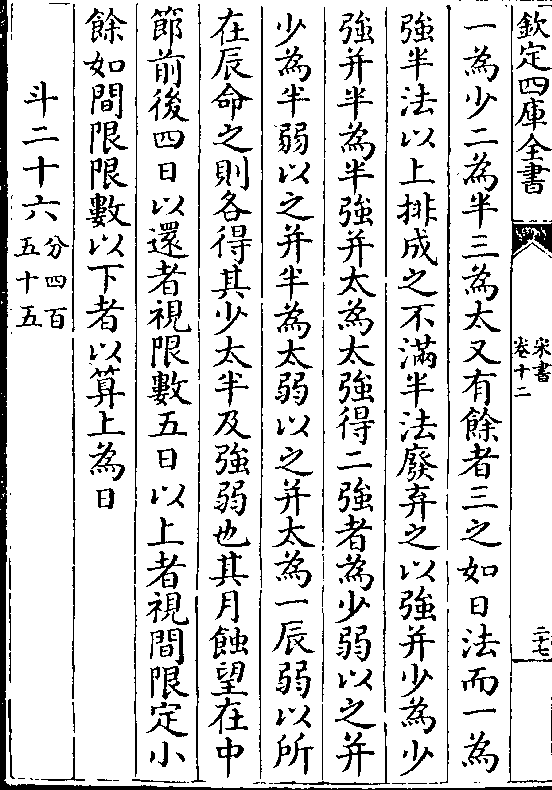 欽定四庫全書
宋書
卷十二
二十七
一為少二為半三為太又有餘者三之如日法而一為
強半法以上排成之不滿半法廢弃之以強并少為少
強并半為半強并太為太強得二強者為少弱以之并
少為半弱以之并半為太弱以之并太為一辰弱以所
在辰命之則各得其少太半及強弱也其月蝕望在中
節前後四日以還者視限數五日以上者視間限定小
餘如間限限數以下者以算上為日
斗二十六分四百
五十五